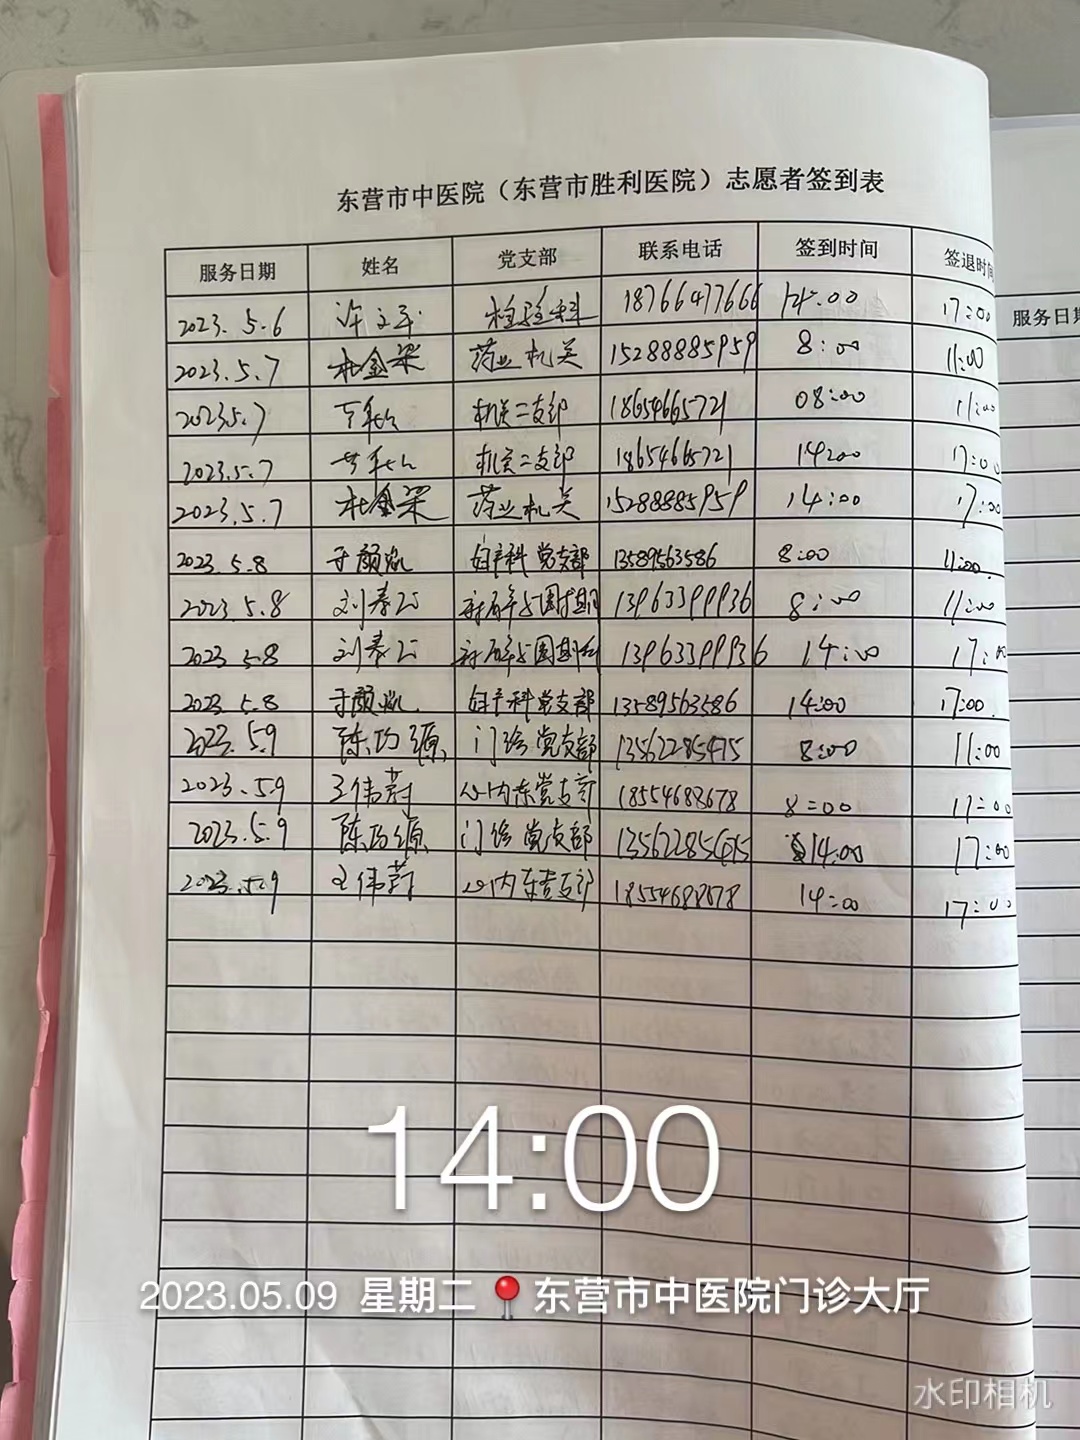 东营市中医院（东营市胜利医院）志愿者签到表
服务日期 姓名 党支部 联系电话 签到时间 签退时间
服务日期
2023.5.6 检验科 18766477666 14:00 17:00
2023.5.7 杜金梁 药业机关 15288885959 8:00 11:00
2023.5.7 机关二支部 18654665721 08:00 11:00
2023.5.7 机关二支部 18654665721 14:00 17:00
2023.5.7 杜金梁 药业机关 15288885959 14:00 17:00
2023.5.8 于颜 妇产科党支部 13589563586 8:00 11:00
2023.5.8 刘春 13963399936 8:00 11:00
2023.5.8 刘春 13963399936 14:00 17:00
2023.5.8 于颜 妇产科党支部 13589563586 14:00 17:00
2023.5.9 陈巧源 门诊党支部 13562285475 8:00 11:00
2023.5.9 王伟蔚 心内东党支部 18554688678 8:00 11:00
2023.5.9 陈巧源 门诊党支部 13562285475 14:00 17:00
2023.5.9 王伟蔚 心内东支部 18554688678 14:00 17:00
14:00
2023.05.09 星期二 东营市中医院门诊大厅
水印相机